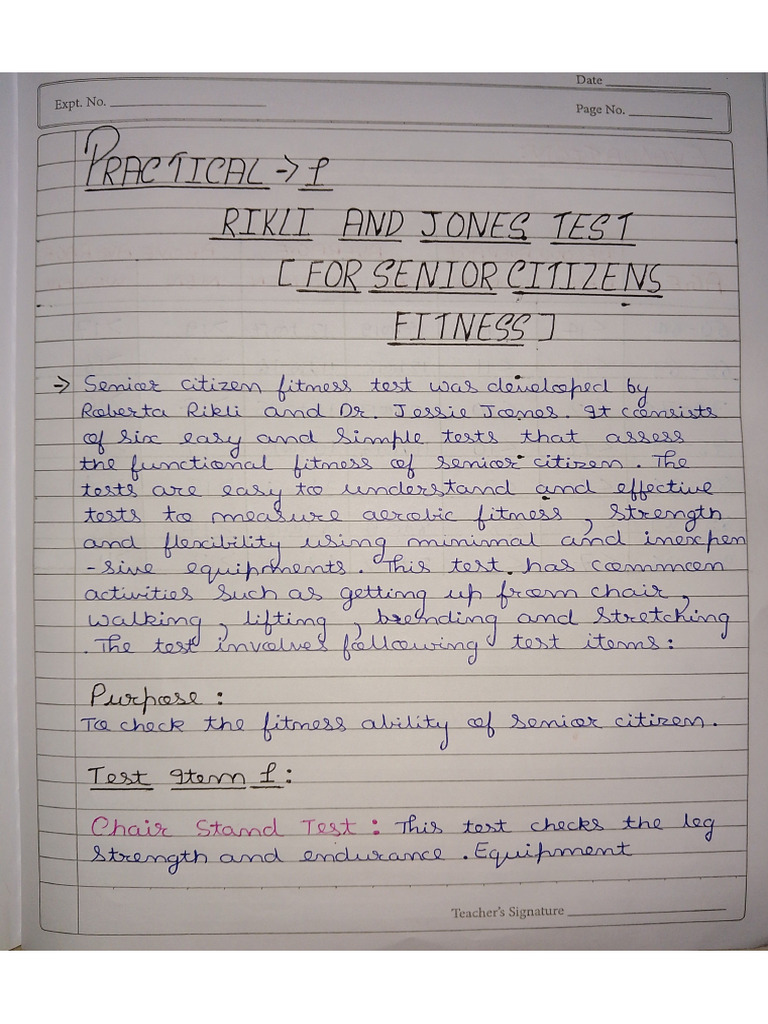 Date
Expt. No.
Page No.
PRACTICAL → 1
RIKLI AND JONES TEST
[FOR SENIOR CITIZENS
FITNESS]
→ Senior citizen fitness test was developed by
Roberta Rikli and Dr. Jessie Jones. It consists
of six easy and simple tests that assess
the functional fitness of senior citizen. The
tests are easy to understand and effective
tests to measure aerobic fitness, strength
and flexibility using minimal and inexpen
-sive equipments. This test has common
activities such as getting up from chair,
walking, lifting, bending and stretching
. The test involves following test items:
Purpose:
To check the fitness ability of senior citizen.
Test Item 1:
Chair Stand Test: This test checks the leg
strength and endurance. Equipment
Teacher's Signature